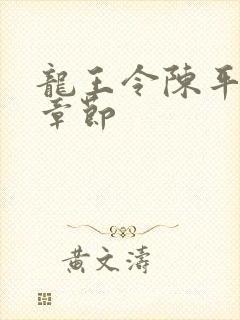 龍王令陳平
章節
黃文濤